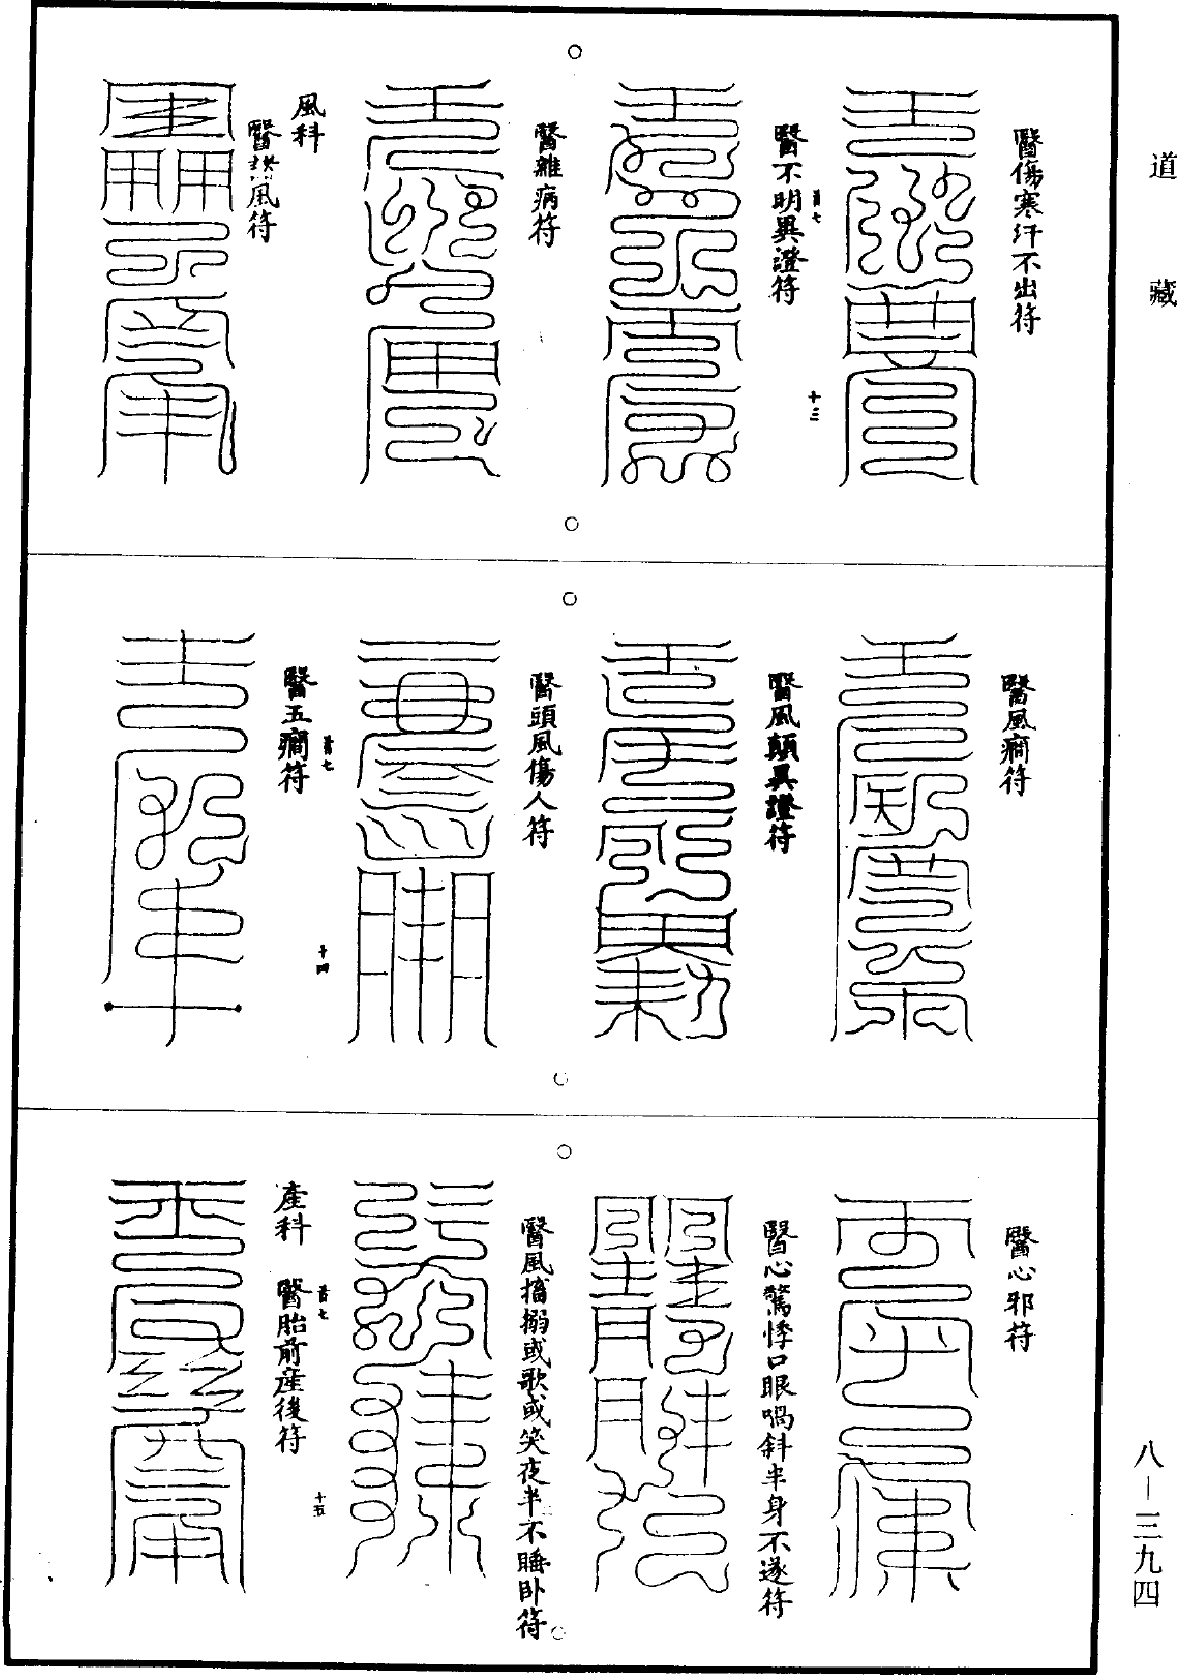 道藏
醫傷寒汗不出符
醫不明異證符
昔七
十三
醫雜病符
風科
醫風符
醫風癇符
醫風顛異證符
醫頭風傷人符
醫五癇符
昔七
十四
醫心邪符
醫心驚悸口眼喎斜半身不遂符
醫風搐搦或歌或笑夜半不睡卧符
產科 醫胎前產後符
昔七
十五
八—三九四